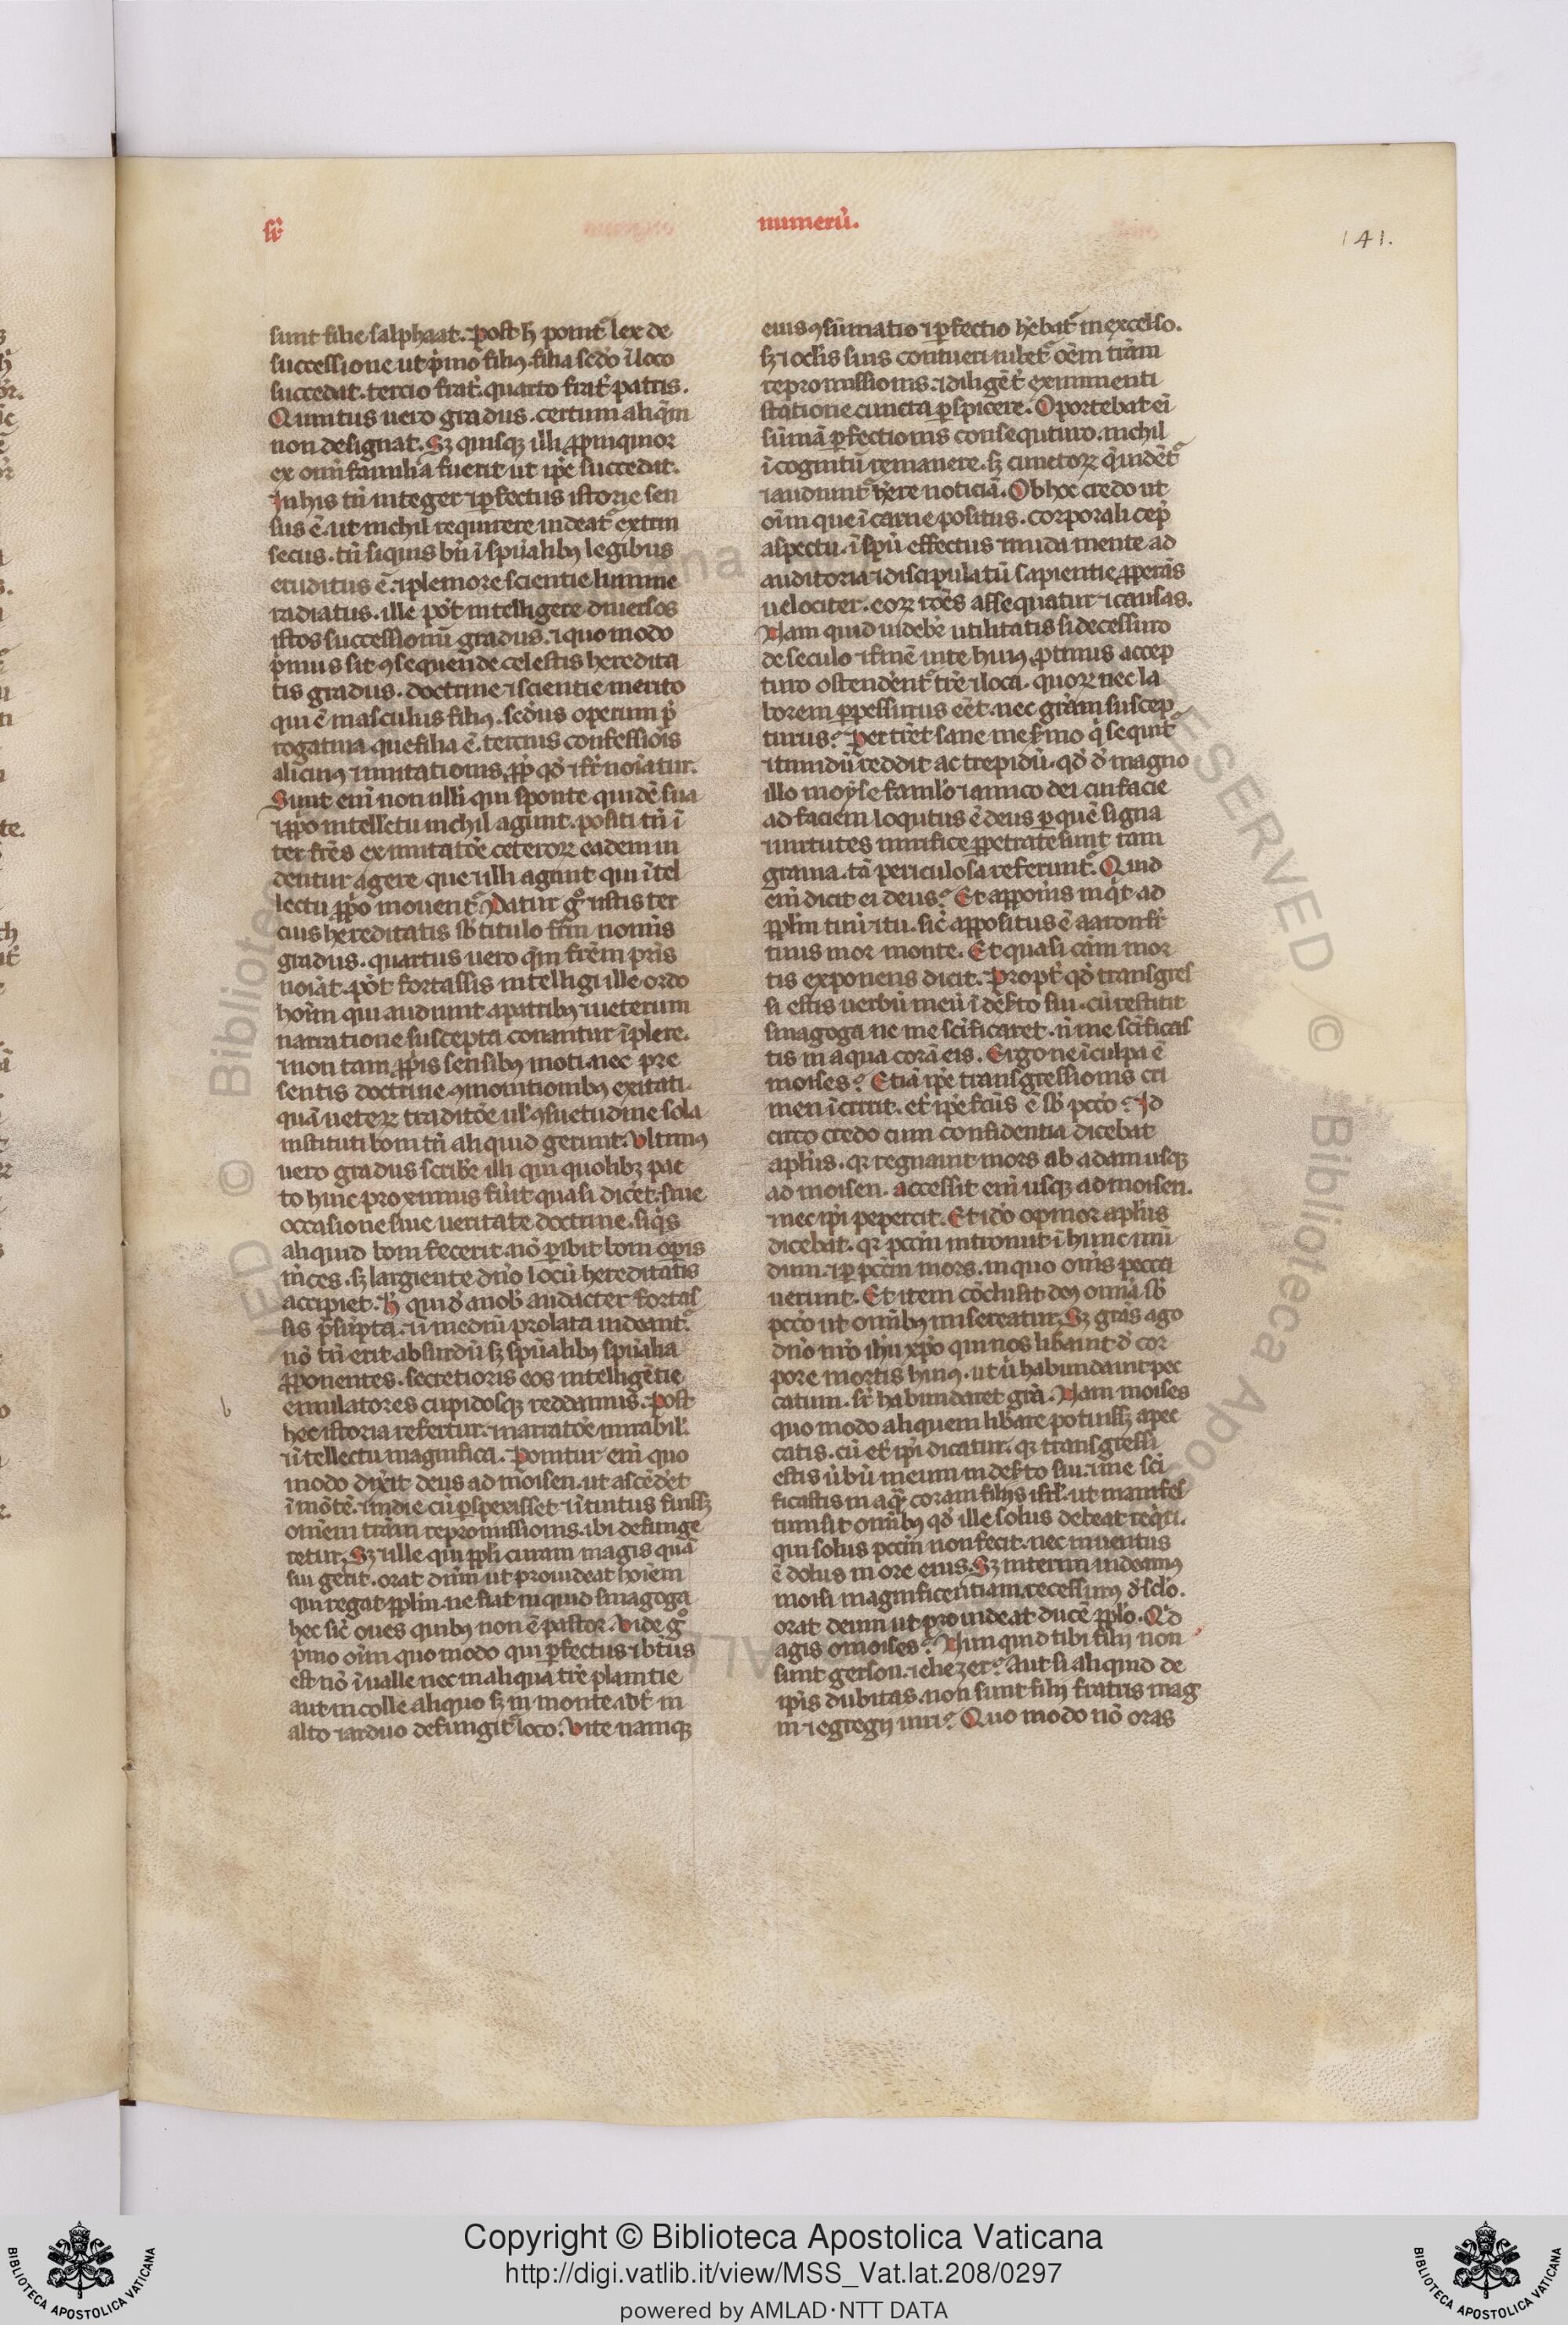 sr̄
numerū.
141.
sunt filie salphaat. Post h̄ ponit᷑ lex de
successione ut p̓mo filiꝰ. filia sc̄do ī loco
succedat. tercio frat̓. quarto frat̓ patris.
Quintus uero gradus. certum aliq̄m
non designat. Sꝫ quisqꝫ illi ꝓpinquior
ex om̄i familia fuerit ut ip̄e succedat.
In his tn̄ integer ⁊ ꝑfectus istorie sen
sus ē. ut nichil requirere uideat᷑ extrin
secus. tn̄ siquis bn̄ ī spūalibꝰ legibus
eruditus ē. ⁊ plemore scientie lumine
radiatus. ille pōt intelligere diuersos
istos successionū gradus. ⁊ quo modo
p̓mus sit ꝯsequende celestis heredita
tis gradus. doctrine ⁊ scientie merito
qui ē masculus filiꝰ. sc̄dus operum p̄
rogatiua que filia ē. tercius confessiōis
alicuiꝰ ⁊ imitationis. ꝓp̄ qd̄ ⁊ fr̄ noīatur.
Sunt eni non ulli qui sponte quidē sua
⁊ ꝓp̓o intellectu nichil agunt. positi tn̄ ī
ter fr̄es ex imitatōe ceteroꝝ eadem ui
dentur agere que illi agunt qui ītel
lectu ꝓp̓o mouent᷑. Datur gͦ istis ter
cius hereditatis sb̄ titulo frm̄ nominis
gradus. quartus uero q̄m frēm pr̄is
uoīat. pōt fortassis intelligi ille ordo
hoīm qui audiunt a patribꝰ ⁊ ueterum
narratione suscepta conantur īplere.
⁊ non tam ꝓp̓is sensibꝰ moti. nec pre
sentis doctrine ꝯmonitionibꝰ exitati.
quā ueteꝝ traditōe ul̓ ꝯsuetudine sola
instituti boni tn̄ aliquid gerunt. Vltimꝰ
uero gradus scribit̓ illi qui quolibꝫ pac
to hinc proximus fūit quasi dicet̓. siue
occasione siue ueritate doctrine. siq̓s
aliquid boni fecerit. nō ꝑibit boni opis
m̓ces. sꝫ largiente dn̄o locū hereditatis
accipiet. h̄ quid̓ a nob̓ audacter fortas
sis p̄sūpta. ⁊ ī mediū prolata uideant᷑.
nō tn̄ erit absurdū sꝫ spūalibꝰ spūalia
ꝓponentes. secretioris eos intelligētie
emulatores cupidosqꝫ reddamus. Post
b
hec istoria refertur. ⁊ narratōe mirabil̓.
⁊ ī tellectu magnifica. Ponitur eni quo
modo dixit deus ad moisen. ut ascēdet̓
ī mōtē. ⁊ inde cū ꝑspexisset ⁊ ītuitus fuissꝫ
omnem tr̄am repromissionis. ibi defunge
retur. Sꝫ ille qui ꝓpl̓i curam magis quā
sui gerit. orat dn̄m ut prouideat hoīem
qui regat ꝓpl̓m. ne fiat inquid sinagoga
hec sic̄ oues quibꝰ non ē pastor. Vide gͦ
p̓mo oīm quo modo qui ꝑfectus ⁊ bt̄us
est nō ī ualle nec in aliqua tr̄e planitie
aut in colle aliquo sꝫ in monte. idē in
alto ⁊ arduo defungit᷑ loco. Vite namqꝫ
eius ꝯsūmatio ⁊ ꝑfectio hēbat᷑ in excelso.
sꝫ ⁊ oclis suis contueri iubet᷑ oēm tr̄am
repromissionis. ⁊ diligēt̓ ex imminenti
statione cuncta ꝑspicere. Oportebat eī
sūmā ꝑfectionis consequturo. nichil
ī cognitū remanere. sꝫ cunctoꝝ q̓ uident᷑
⁊ audiunt᷑ hēre noticiā. Ob hoc credo ut
oīm que ī carne positus. corporali cep̄
aspectu. ī spū effectus ⁊ muda mente ad
auditoria ⁊ discipulatū sapientie ꝓperās
uelociter. eoꝝ rōes assequatur ⁊ causas.
Nam quid uidebr̄ utilitatis si decessuro
de seculo ⁊ finē uite huiꝰ ꝓtinus accep
turo ostendent᷑ tr̄e ⁊ loca. quoꝝ nec la
borem ꝑpessurus eēt. nec gr̄am suscep
turus? Perterret sane me sermo q̓ sequit᷑
⁊ timidū reddit ac trepidū. qd̓ d̓ magno
illo moyse famlo ⁊ amico dei cui facie
ad faciem loqutus ē deus ꝑ quē signa
⁊ uirtutes mirifice ꝑpetrate sunt tam
grauia. tā periculosa referunt᷑. Quid
eni dicit ei deus? Et apponis inq̓t ad
ꝓpl̓m tuū ⁊ tu. sic̄ appositus ē aaron fr̄
tuus in or monte. Et quasi cām mor
tis exponens dicit. Propt̓ qd̓ transgres
si estis uerbū meū ī desrto sin. cū restitit
sinagoga ne me sc̄ificaret. n̄ me sc̄ificas
tis in aqua corā eis. Ergo ne ī culpa ē
moises? Etiā ip̄e transgressionis cri
men īcurrit. et̓ ip̄e fc̄us ē sb̄ pcc̄o? Id
circo credo cum confidentia dicebat
apl̓us. qꝛ regnauit mors ab adam usqꝫ
ad moisen. accessit eni usqꝫ ad moisen.
⁊ nec ipi pepercit. Et ido opinor apl̓us
dicebat. qꝛ pcc̄m introiuit ī hunc mū
dum. ⁊ ꝑ pcc̄m mors. in quo om̄s pecca
uerunt. Et item cōclusit deꝰ omnia sb̄
pcc̄o ut omībꝰ misereatur. Sꝫ gr̄as ago
dn̄o nr̄o ihū xp̄o qui nos libauit d̓ cor
pore mortis huiꝰ. ut ū habundauit pec
catum. sr̄ habundaret gr̄a. Nam moises
quo modo aliquem libare potuissꝫ a pec
catis. cū et̓ ipi dicatur. qꝛ transgressi
estis ūbū meum in desrto sin. ⁊ me sc̄i
ficastis in aq̄. coram filijs isrl̓. ut manifes
tum sit omībꝰ qd̓ ille solus debeat req̓ri.
qui solus pcc̄m non fecit. nec inuentus
ē dolus in ore eius. Sꝫ interim uideamꝰ
moisi magnificentiam. recessurꝰ d̓ sclo.
orat deum ut prouideat ducē ꝓplo. Qd̓
agis o moises? Nunquid tibi filij non
sunt gerson. ⁊ eliezer? Aut si aliquid de
ip̄is dubitas. non sunt filij fratris mag
ni ⁊ egregij uiri? Quo modo nō oras
Copyright © Biblioteca Apostolica Vaticana
http://digi.vatlib.it/view/MSS_Vat.lat.208/0297
powered by AMLAD·NTT DATA